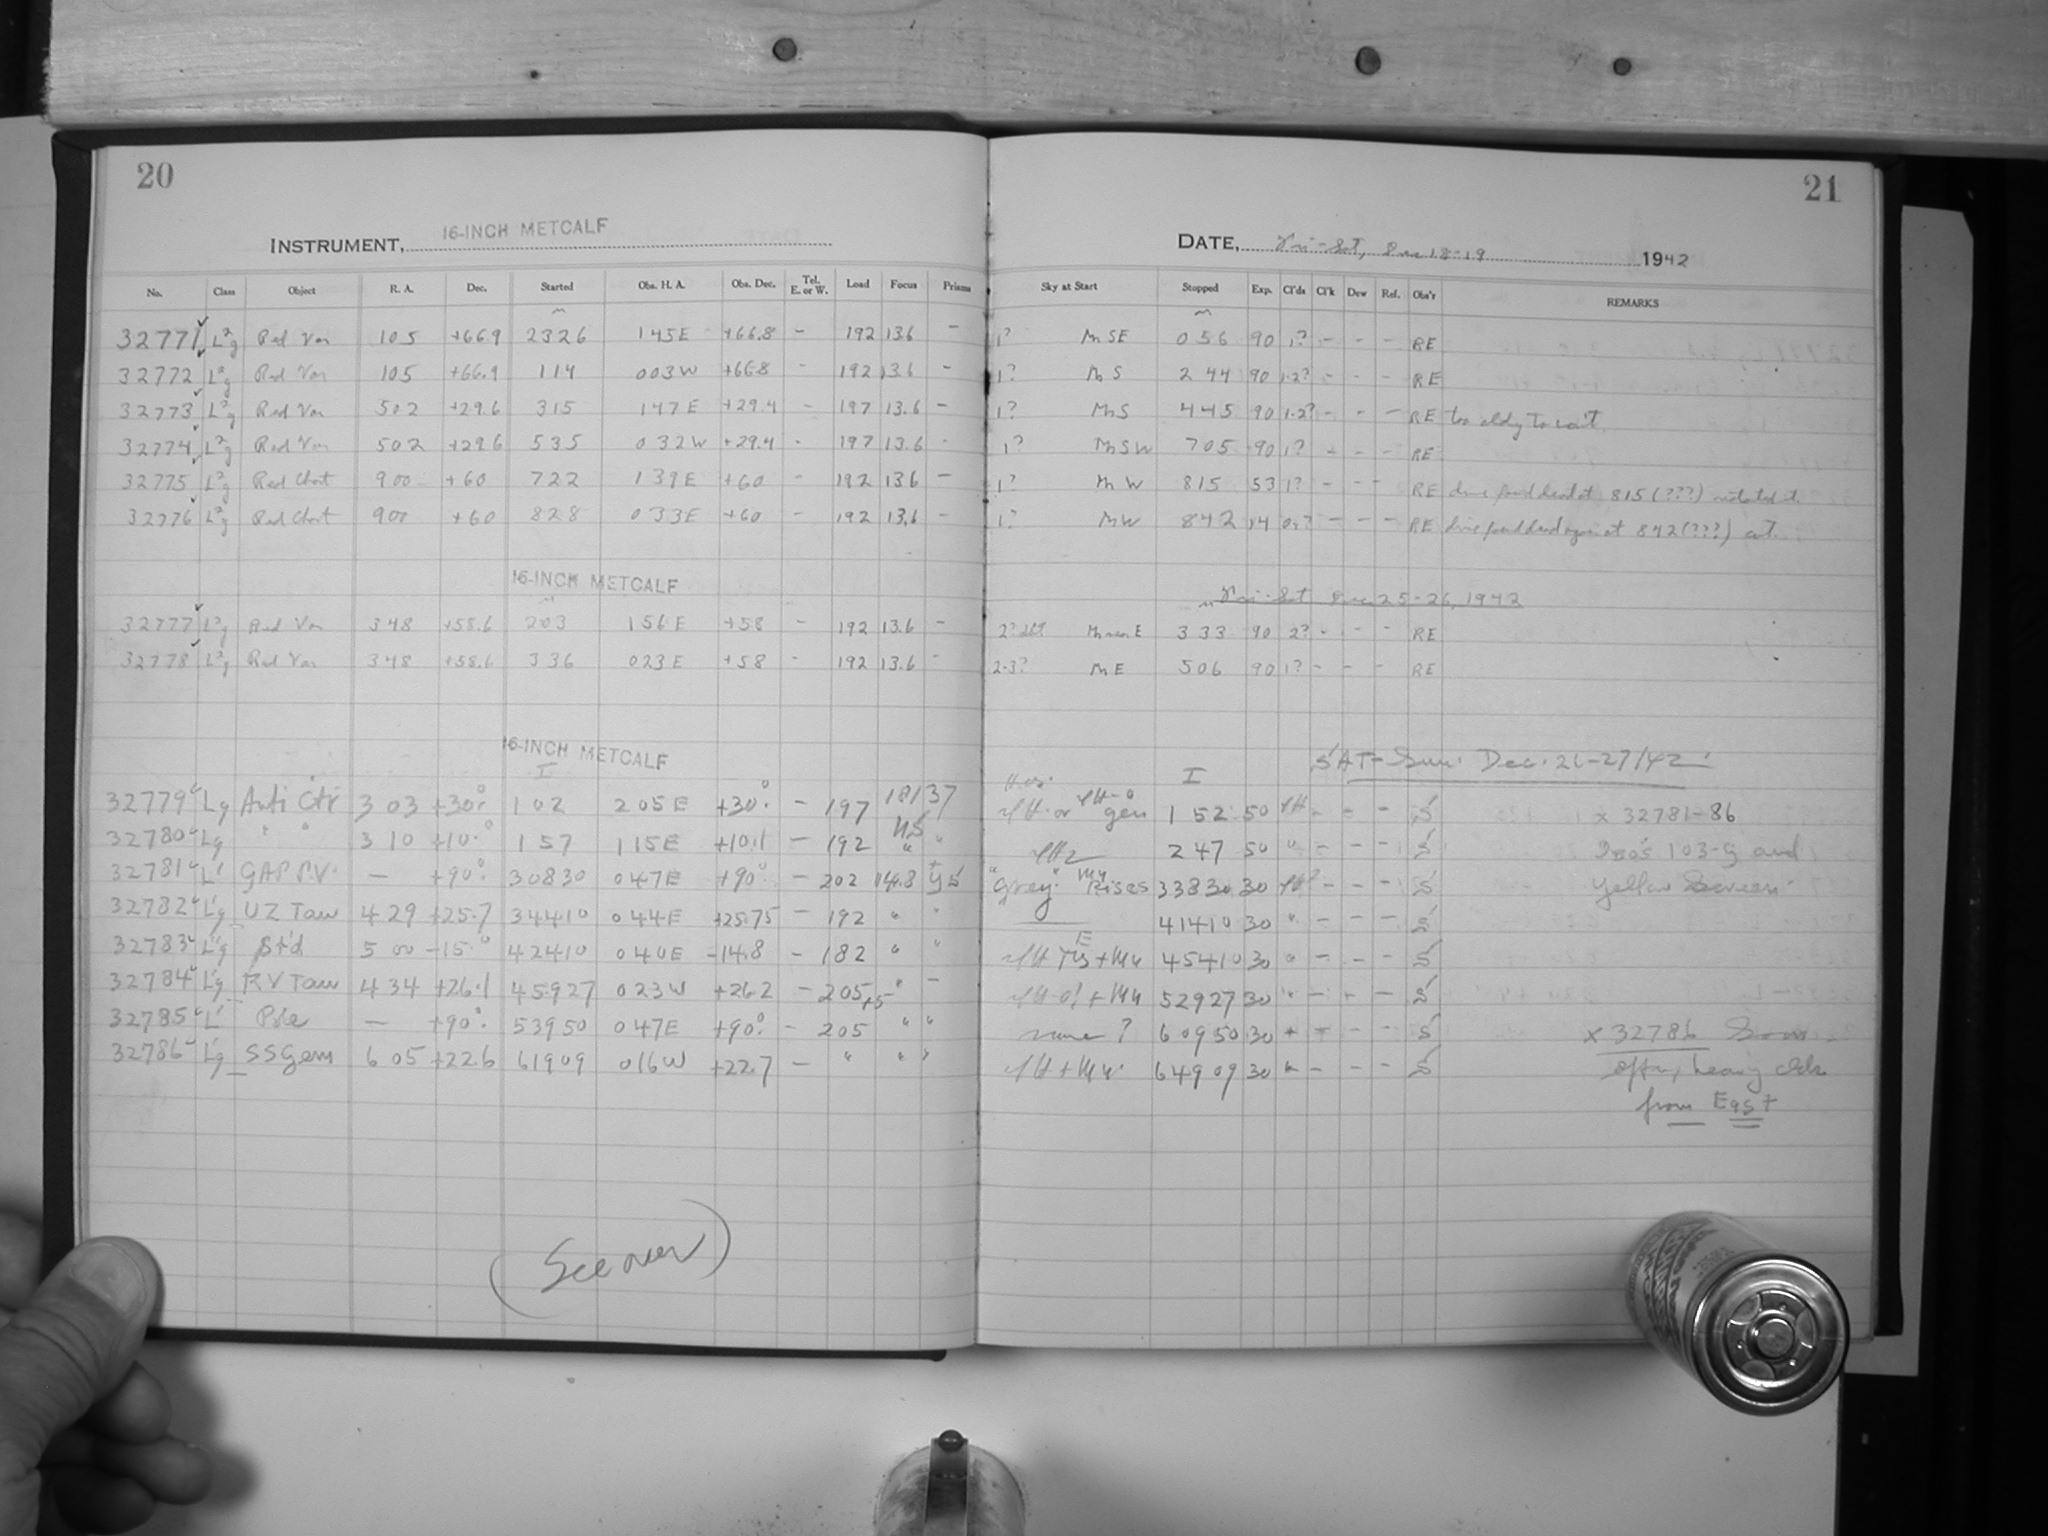 20
INSTRUMENT, 16-INCH METCALF
No. Class Object R. A. Dec. Started Obs. H. A. Obs. Dec. Tel. E. or W. Load Focus Prisms
32771 L²g Red Var 105 +66.9 2326 145E +66.8 - 192 13.6 -
32772 L²g Red Var 105 +66.9 114 003W +66.8 - 192 13.6 -
32773 L²g Red Var 502 +29.6 315 147E +29.4 - 197 13.6 -
32774 L²g Red Var 502 +29.6 535 032W +29.4 - 197 13.6 -
32775 L²g Red Chart 900 +60 722 139E +60 - 192 13.6 -
32776 L²g Red Chart 900 +60 828 033E +60 - 192 13.6 -
16-INCH METCALF
32777 L²g Red Var 348 +58.6 203 156E +58 - 192 13.6 -
32778 L²g Red Var 348 +58.6 336 023E +58 - 192 13.6 -
16-INCH METCALF
I
32779 Lg Anti Ctr 303 +30° 102 205E +30° - 197
32780 Lg " " 310 +10° 157 115E +10.1 - 192 " "
32781 L' +90° 30830 047E +90° - 202 14.8
32782 L'g UZ Tau 429 +25.7 34410 044E +25.75 - 192 " "
32783 L'g Std 500 -15° 42410 040E -14.8 - 182 " "
32784 L'g RV Tau 434 +26.1 45927 023W +26.2 - 205 +5 " -
32785 L' Pole - +90° 53950 047E +90° - 205 " "
32786 L'g SS Gem 605 +22.6 61909 016W +22.7 - " " "
(See over)
21
DATE, Fri-Sat, Dec 18-19 1942
Sky at Start Stopped Exp. Cl'ds Cl'k Dew Ref. Obs'r REMARKS
1? Mn SE 056 90 1? - - - RE
1? Mn S 244 90 1-2? - - - RE
1? Mn S 445 90 1-2? - - - RE too cldy to wait
1? Mn SW 705 90 1? - - - RE
1? Mn W 815 53 1? - - - RE drive found dead at 815 (???)
1? M W 842 14 0-? - - - RE drive found dead again at 842 (???)
Fri-Sat Dec 25-26, 1942
2? Mn E 333 90 2? - - - RE
2-3? Mn E 506 90 1? - - - RE
SAT-Sun. Dec. 26-27/42
I
gen 152 50 - - - S x 32781-86
247 50 " - - - S 103-g and
"Grey" Rises 33830 30 - - - S Yellow Screen
41410 30 " - - - S
45410 30 " - - - S
52927 30 " - - - S
none? 60950 30 - - - S x 32786
64909 30 - - - S heavy clds
from East